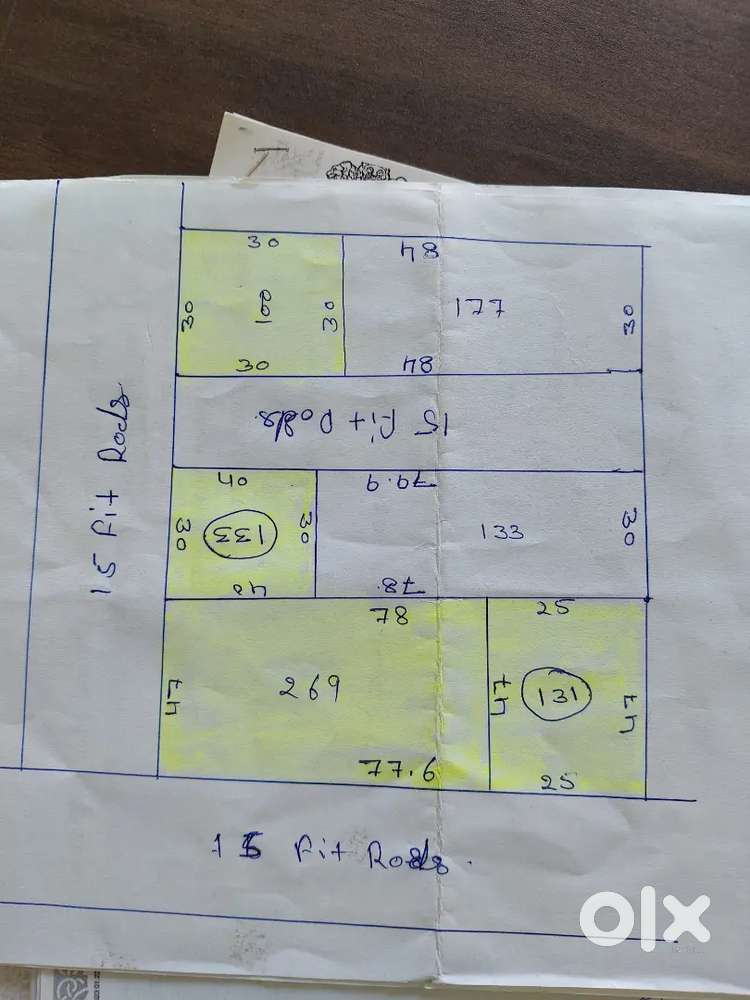 30
84
30
100
30
177
30
30
84
15 Fit Rods
15 Fit Rods.
40
79.9
30
133
30
133
30
40
78.
78
25
47
269
47
131
47
77.6
25
15 Fit Rods.
olx